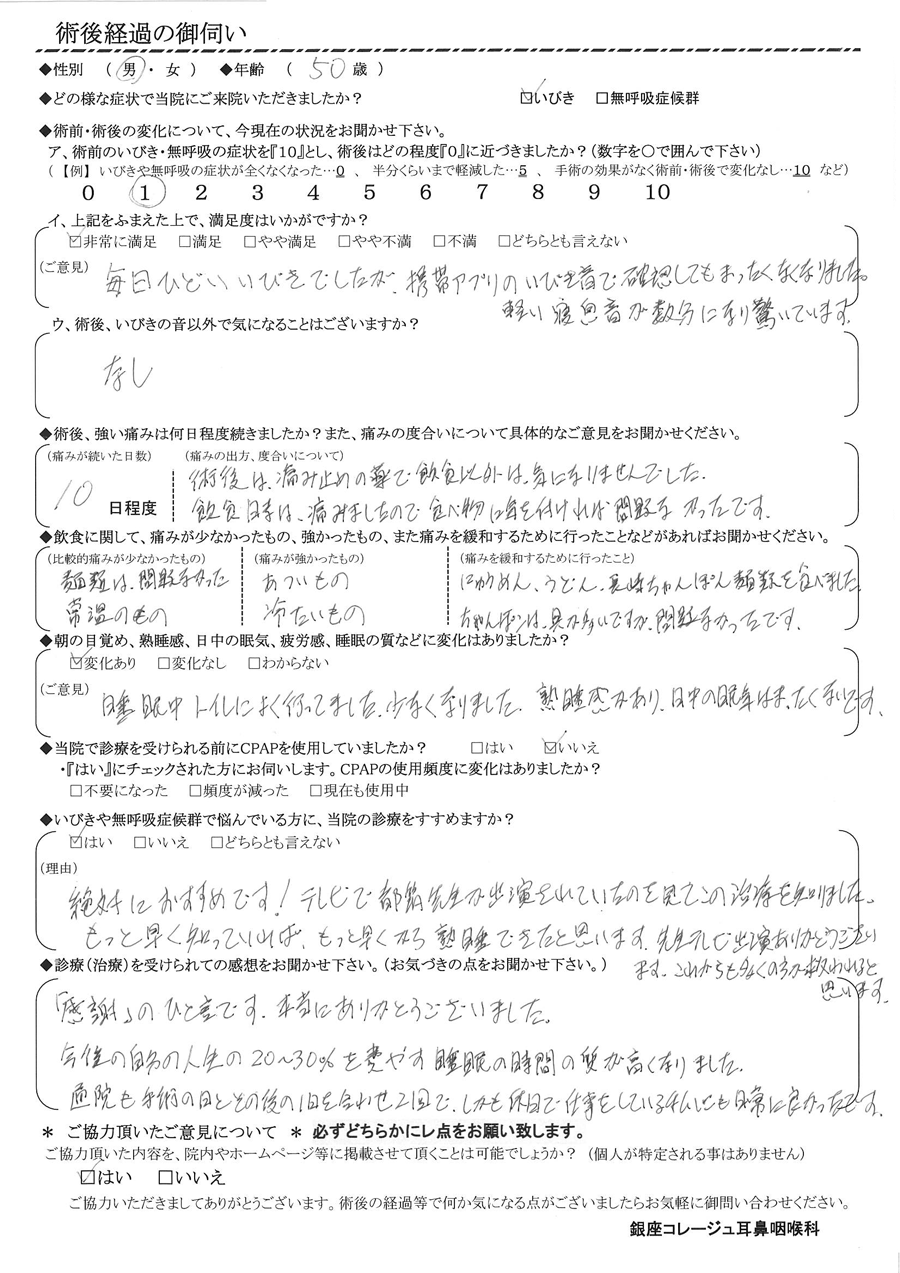 術後経過の御伺い
◆性別 （ 男 ・ 女 ） ◆年齢 （ 50 歳 ）
◆どの様な症状で当院にご来院いただきましたか？ ☑いびき □無呼吸症候群
◆術前・術後の変化について、今現在の状況をお聞かせ下さい。
ア、術前のいびき・無呼吸の症状を『10』とし、術後はどの程度『0』に近づきましたか？（数字を○で囲んで下さい）
（【例】 いびきや無呼吸の症状が全くなくなった…0 、 半分くらいまで軽減した…5 、 手術の効果がなく術前・術後で変化なし…10 など）
0 1 2 3 4 5 6 7 8 9 10
イ、上記をふまえた上で、満足度はいかがですか？
☑非常に満足 □満足 □やや満足 □やや不満 □不満 □どちらとも言えない
（ご意見） 毎日ひどいいびきでしたが、携帯アプリのいびき音で確認してもまったくなくなりました。
軽い寝息音が数分になり驚いています。
ウ、術後、いびきの音以外で気になることはございますか？
なし
◆術後、強い痛みは何日程度続きましたか？また、痛みの度合いについて具体的なご意見をお聞かせください。
（痛みが続いた日数） （痛みの出方、度合いについて）
術後は、痛み止めの薬で飲食以外は、気になりませんでした。
10 日程度
飲食時は、痛みましたので食べ物に気を付ければ問題なかったです。
◆飲食に関して、痛みが少なかったもの、強かったもの、また痛みを緩和するために行ったことなどがあればお聞かせください。
（比較的痛みが少なかったもの） （痛みが強かったもの） （痛みを緩和するために行ったこと）
麺類は、問題なかった あついもの にゅうめん、うどん、長崎ちゃんぽん麺類を食べました。
常温のもの 冷たいもの ちゃんぽんは、具が多いですが、問題なかったです。
◆朝の目覚め、熟睡感、日中の眠気、疲労感、睡眠の質などに変化はありましたか？
☑変化あり □変化なし □わからない
（ご意見） 睡眠中トイレによく行ってました。少なくなりました。熟睡感があり、日中の眠気はまったくないです。
◆当院で診療を受けられる前にCPAPを使用していましたか？ □はい ☑いいえ
・『はい』にチェックされた方にお伺いします。CPAPの使用頻度に変化はありましたか？
□不要になった □頻度が減った □現在も使用中
◆いびきや無呼吸症候群で悩んでいる方に、当院の診療をすすめますか？
☑はい □いいえ □どちらとも言えない
（理由）
絶対におすすめです！テレビで都筑先生が出演されていたのを見てこの治療を知りました。
もっと早く知っていれば、もっと早くから熟睡できたと思います。先生テレビ出演ありがとうござい
ます。これからも多くの方が救われると
思います。
◆診療（治療）を受けられての感想をお聞かせ下さい。（お気づきの点をお聞かせ下さい。）
「感謝」のひと言です。本当にありがとうございました。
今後の自分の人生の20～30％を費やす睡眠の時間の質が高くなりました。
通院も手術の日とその後の1日を合わせ2回で、しかも休日で仕事をしている私にも非常に良かったです。
＊ ご協力頂いたご意見について ＊ 必ずどちらかにレ点をお願い致します。
ご協力頂いた内容を、院内やホームページ等に掲載させて頂くことは可能でしょうか？ （個人が特定される事はありません）
☑はい □いいえ
ご協力いただきましてありがとうございます。術後の経過等で何か気になる点がございましたらお気軽に御問い合わせください。
銀座コレージュ耳鼻咽喉科